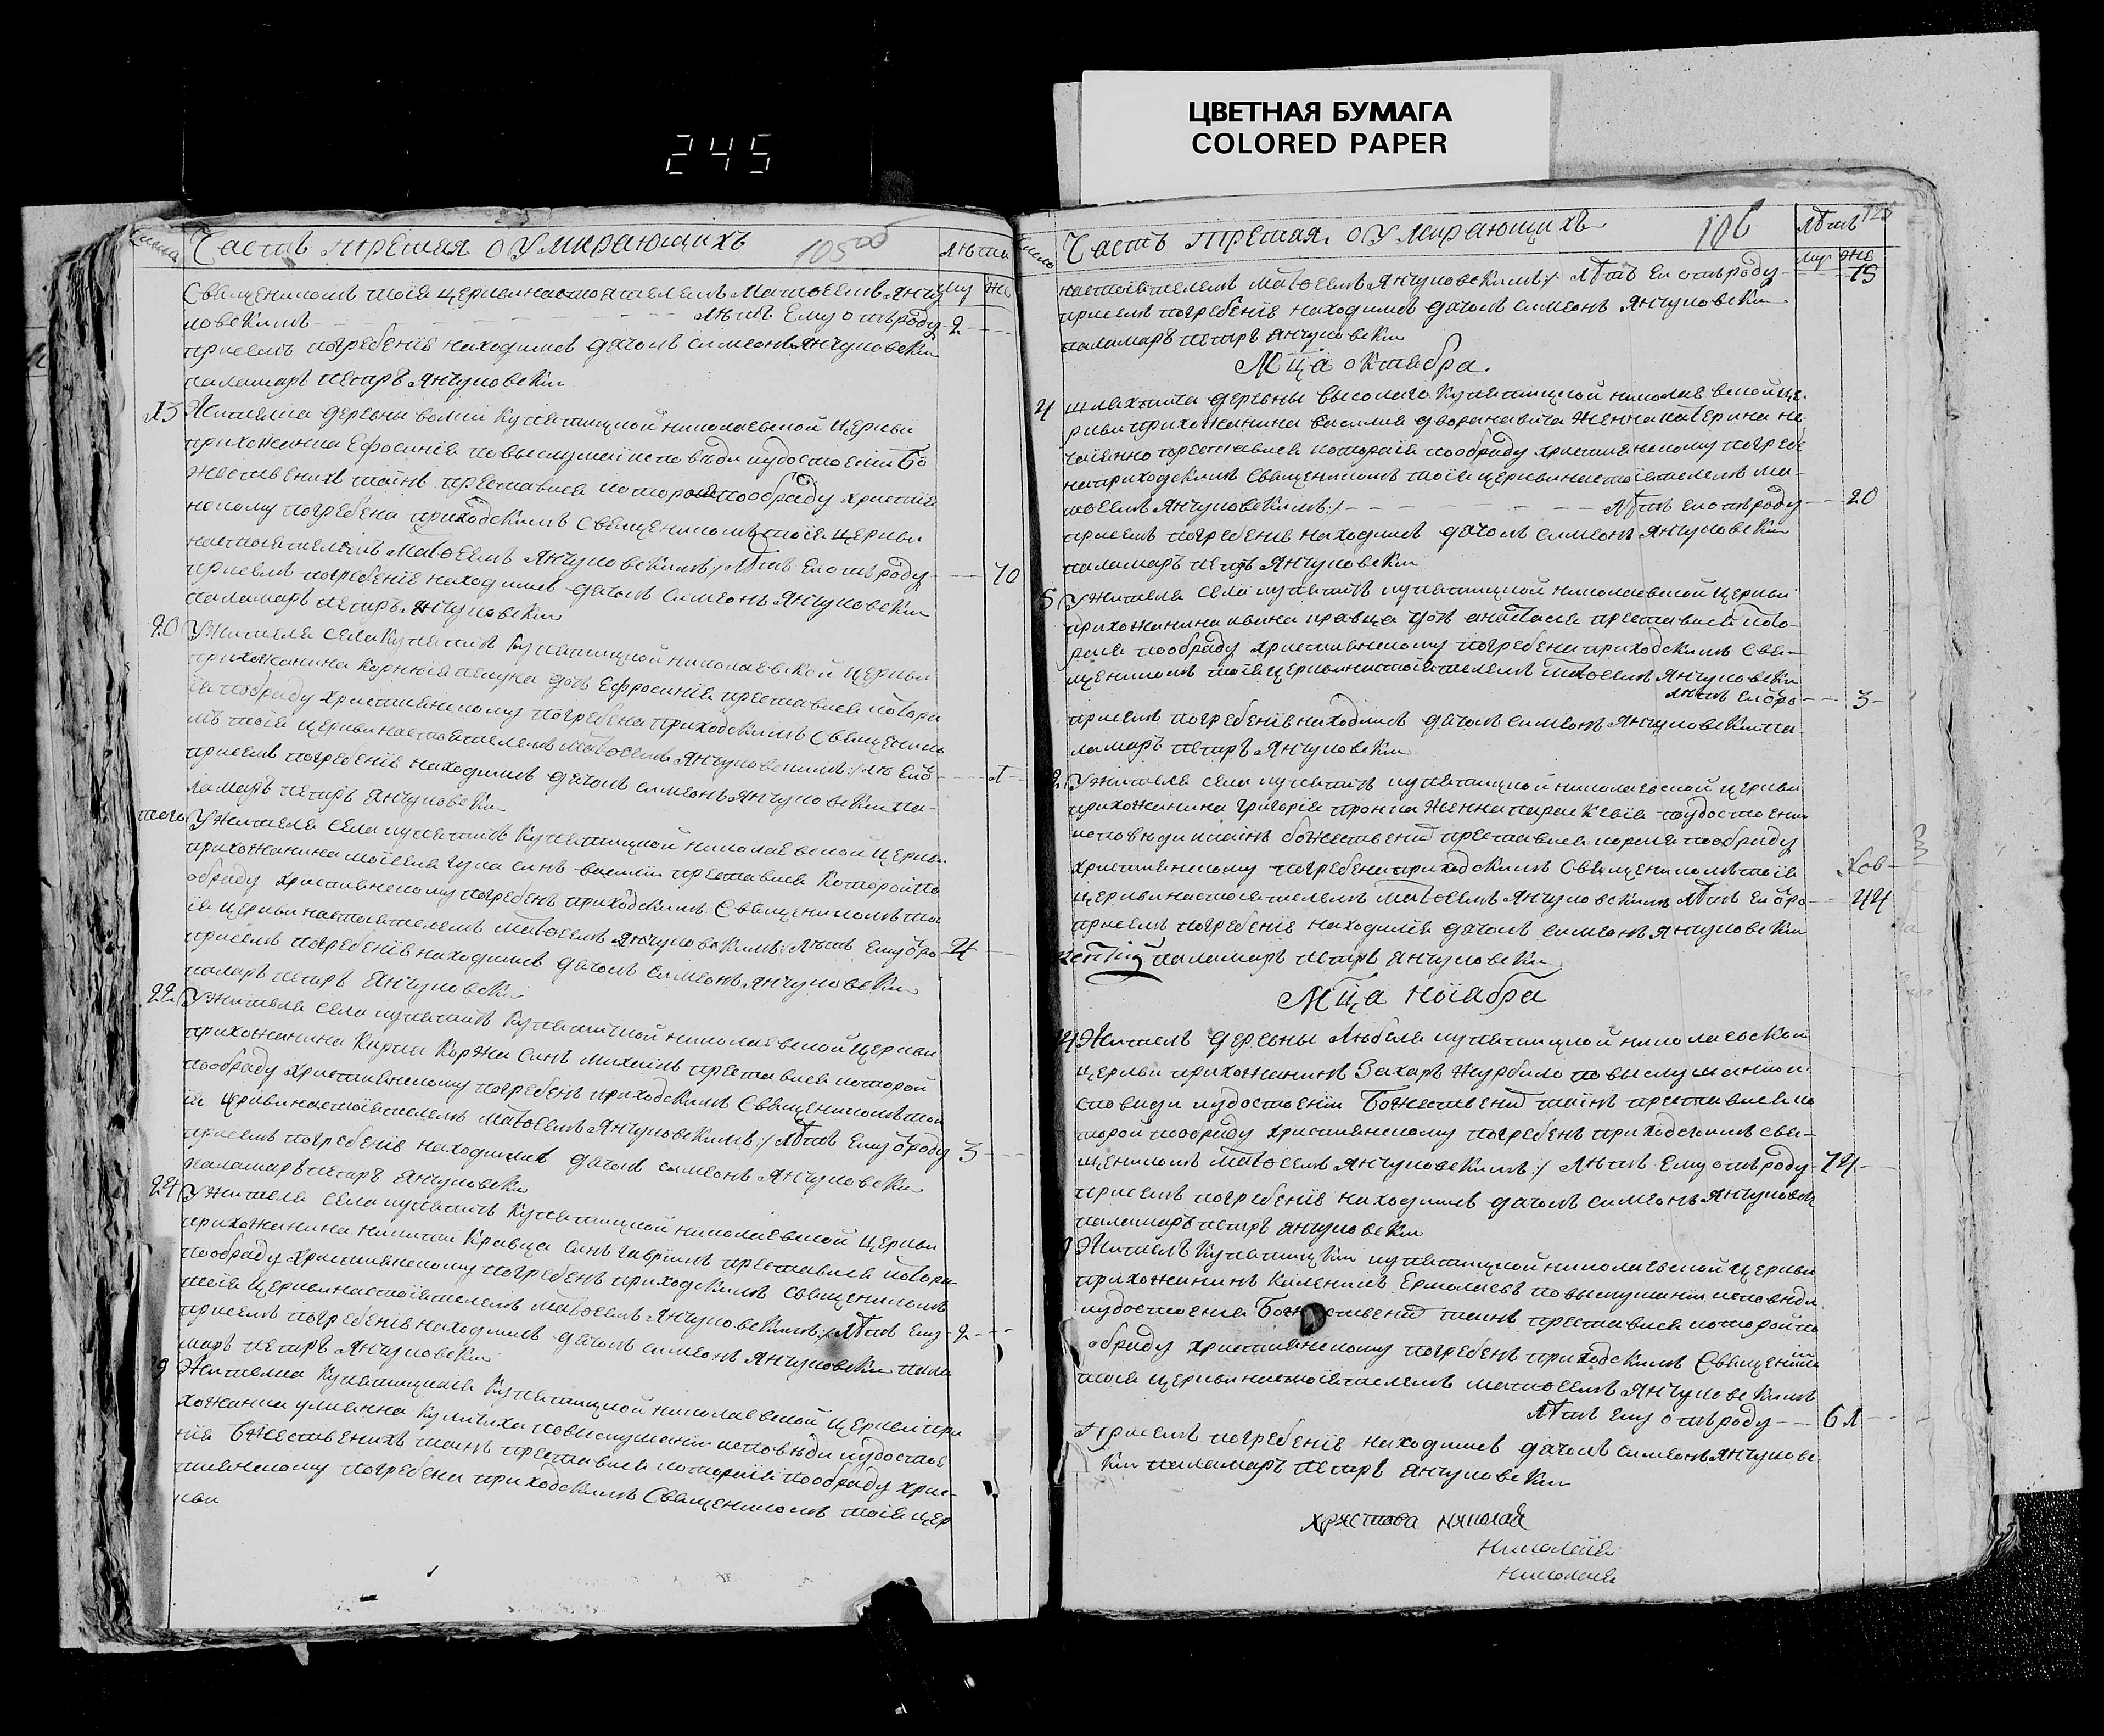 ЦВЕТНАЯ БУМАГА
COLORED PAPER
245
числа Часть третая о Умирающихъ 105 об лѣта
му же
Священикомъ тоея церкви настоятелемъ Матѳеемъ Янчу
ковскимъ лѣтъ Ему отъ роду 2
присемъ погребеніе находился дячокъ симеонъ Янчуковски
паламаръ петръ Янчуковски
13 Жителка деревны волки Купятицкой николаевской церкви
прихожанка Ефросинія повыслушаи исповѣди иудостоеніи Бо
жественихъ таинъ преставися которая пообряду христия
нскому погребена приходскимъ Священикомъ тоея церкви
настоятелемъ Матѳеемъ Янчуковскимъ :/ лѣтъ Ея отъ роду 70
присемъ погребеніе находился дячокъ симеонъ Янчуковски
паламаръ петръ Янчуковски
20 У жителя села Купятичъ Купятицкой николаевской церкви
прихожанина Корнея дочъ Ефросиния преставися котора
ія пообряду християнскому погребена приходскимъ Священико
мъ тоея церкви настоятелемъ Матѳеемъ Янчуковскимъ :/
присемъ погребеніе находился дячокъ симеонъ Янчуковски па
ламаръ петръ Янчуковски
того У жителя села купятичъ Купятицкой николаевской церкви
прихожанина моисея синъ василии преставися Которои по
обряду християнскому погребенъ приходскимъ Священикомъ то
ія церкви настоятелемъ Матѳеемъ Янчуковскимъ :/ лѣтъ Ему 4
присемъ погребеніе находился дячокъ симеонъ Янчуковски
паламаръ петръ Янчуковски
22 У жителя села купятичъ Купятицкой николаевской церкви
прихожанина Карпа Коржа синъ михаилъ преставися которой
пообряду християнскому погребенъ приходскимъ Священикомъ тое
ія церкви настоятелемъ Матѳеемъ Янчуковскимъ :/ лѣтъ Ему 3
присемъ погребеніе находился дячокъ симеонъ Янчуковски
паламаръ петръ Янчуковски
24 У жителя села купятичъ Купятицкой николаевской церкви
прихожанина никити Кравца синъ гавріилъ преставися котори
пообряду християнскому погребенъ приходскимъ священикомъ
тоея церкви настоятелемъ Матѳеемъ Янчуковскимъ :/ лѣтъ Ему 2
присемъ погребеніе находился дячокъ симеонъ Янчуковски пала
маръ петръ Янчуковски
Жителка Купятицкая Купятицкой николаевской церкви при
хожанка улиянна повыслушании исповѣди иудостое
ніе Бжественихъ таинъ преставися которая пообряду хрис
тиянскому погребена приходскимъ Священикомъ тоея цер
кви
число Часть третая о Умирающихъ 106 лѣтъ 125
му же
настоятелемъ Матѳеемъ Янчуковскимъ :/ лѣтъ Ея отъ роду
присемъ погребеніе находился дячокъ симеонъ Янчуковски
паламаръ петръ Янчуковски
Мца октября
4 шляхтича деревны высокаго Купятицкой николаевской це
ркви прихожанина василия женна катерина не
чаянно преставися которая пообряду християнскому погребе
на приходскимъ Священикомъ тоея церкви настоятелемъ ма
тѳеемъ Янчуковскимъ :/ лѣтъ Ея отъ роду 20
присемъ погребеніе находился дячокъ симеонъ Янчуковски
паламаръ петръ Янчуковски
У жителя села купятичъ купятицкой николаевской церкви
прихожанина ивана кравца дочъ анастасія преставися кото
рая пообряду християнскому погребена приходскимъ Свя
щеникомъ тоея церкви настоятелемъ Матѳеемъ Янчуковски
лѣтъ Ея 3
присемъ погребеніе находился дячокъ симеонъ Янчуковски па
ламаръ петръ Янчуковски
У жителя села купятичъ купятицкой николаевской церкви
прихожанина григорія женна параскевія поудостоении
исповѣди таинъ божествених преставися пообряду
християнскому погребена приходскимъ Священикомъ тоея
церкви настоятелемъ Матѳеемъ Янчуковскимъ лѣтъ Ея 44
присемъ погребеніе находился дячокъ симеонъ Янчуковски
паламаръ петръ Янчуковски
Мца ноіабра
Жителъ деревны купятицкой николаевской
церкви прихожанинъ Захаръ повыслушании и
споведи иудостоении Божествених таинъ преставися ко
торой пообряду християнскому погребенъ приходскимъ свя
щеникомъ Матѳеемъ Янчуковскимъ :/ лѣтъ Ему отъ роду 74
присемъ погребеніе находился дячокъ симеонъ Янчуковски
паламаръ петръ Янчуковски
Жителъ Купятицки купятицкой николаевской церкви
прихожанинъ Ермолаевъ повыслушании исповѣди
иудостоения Божествених таинъ преставися которой по
обряду християнскому погребенъ приходскимъ Священи
тоея церкви настоятелемъ матѳеемъ Янчуковскимъ
лѣтъ Ему отъ роду 61
Присемъ погребеніе находился дячокъ симеонъ Янчуковс
ки паламаръ петръ Янчуковски
христова николая
николаія
николаія